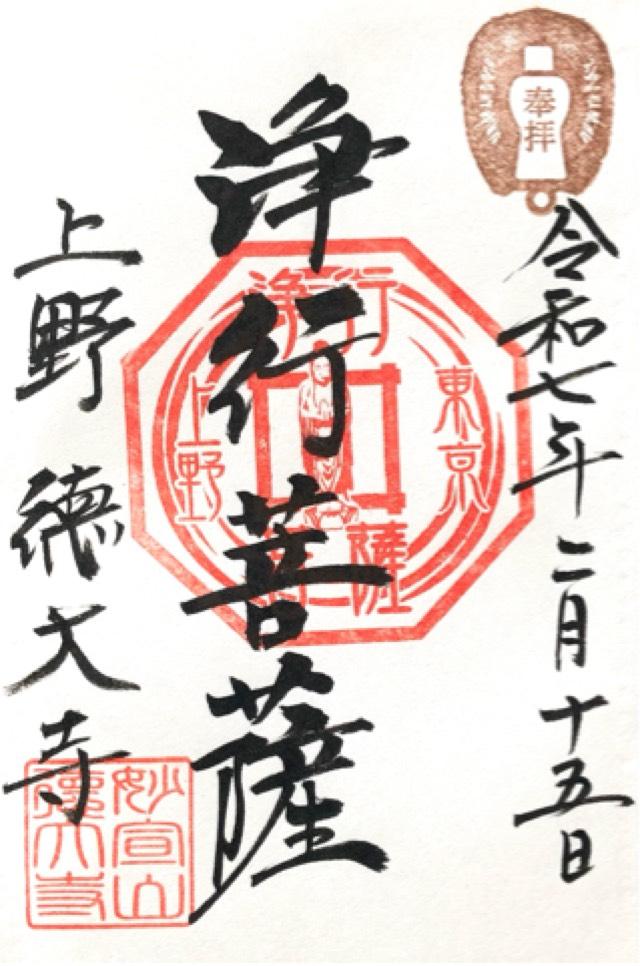 奉拝
令和七年二月十五日
浄行菩薩
上野 徳大寺
東京
上野
浄行
菩薩
妙宣山
德大寺